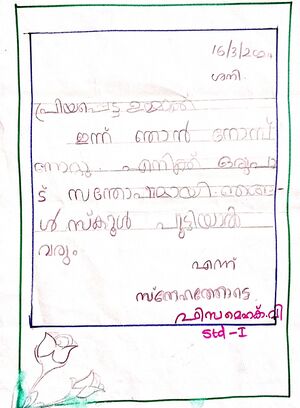 16/3/2024
ശനി
പ്രിയപ്പെട്ട ഉമ്മാക്ക്
ഇന്ന് ഞാൻ നോമ്പ്
നോറ്റു. എനിക്ക് ഒരുപാ
ട് സന്തോഷമായി. ഞങ്ങ-
ൾ സ്കൂൾ പൂട്ടിയാൽ
വരും.
എന്ന്
സ്നേഹത്തോടെ
ഫിസ മെഹക്. വി
Std - I